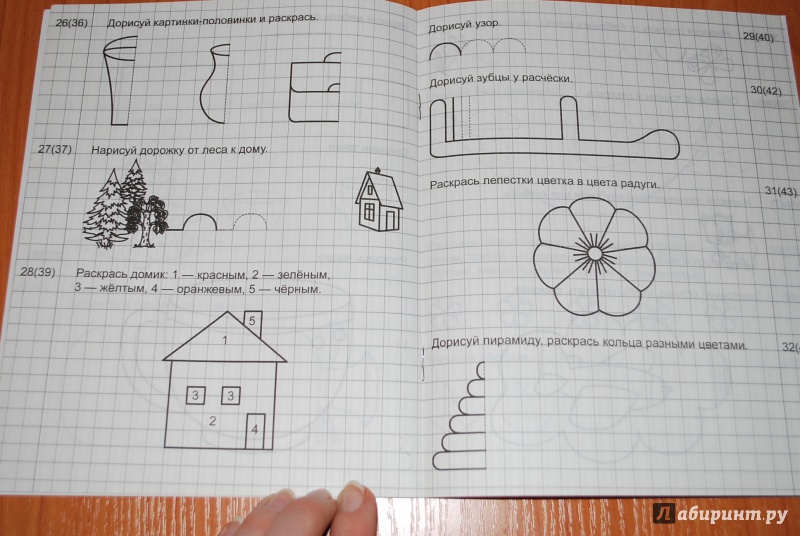 26(36) Дорисуй картинки-половинки и раскрась.
27(37) Нарисуй дорожку от леса к дому.
28(39) Раскрась домик: 1 — красным, 2 — зелёным,
3 — жёлтым, 4 — оранжевым, 5 — чёрным.
5
1
3 3
2
4
Дорисуй узор. 29(40)
Дорисуй зубцы у расчёски. 30(42)
Раскрась лепестки цветка в цвета радуги. 31(43)
Дорисуй пирамиду, раскрась кольца разными цветами. 32(
Лабиринт.ру